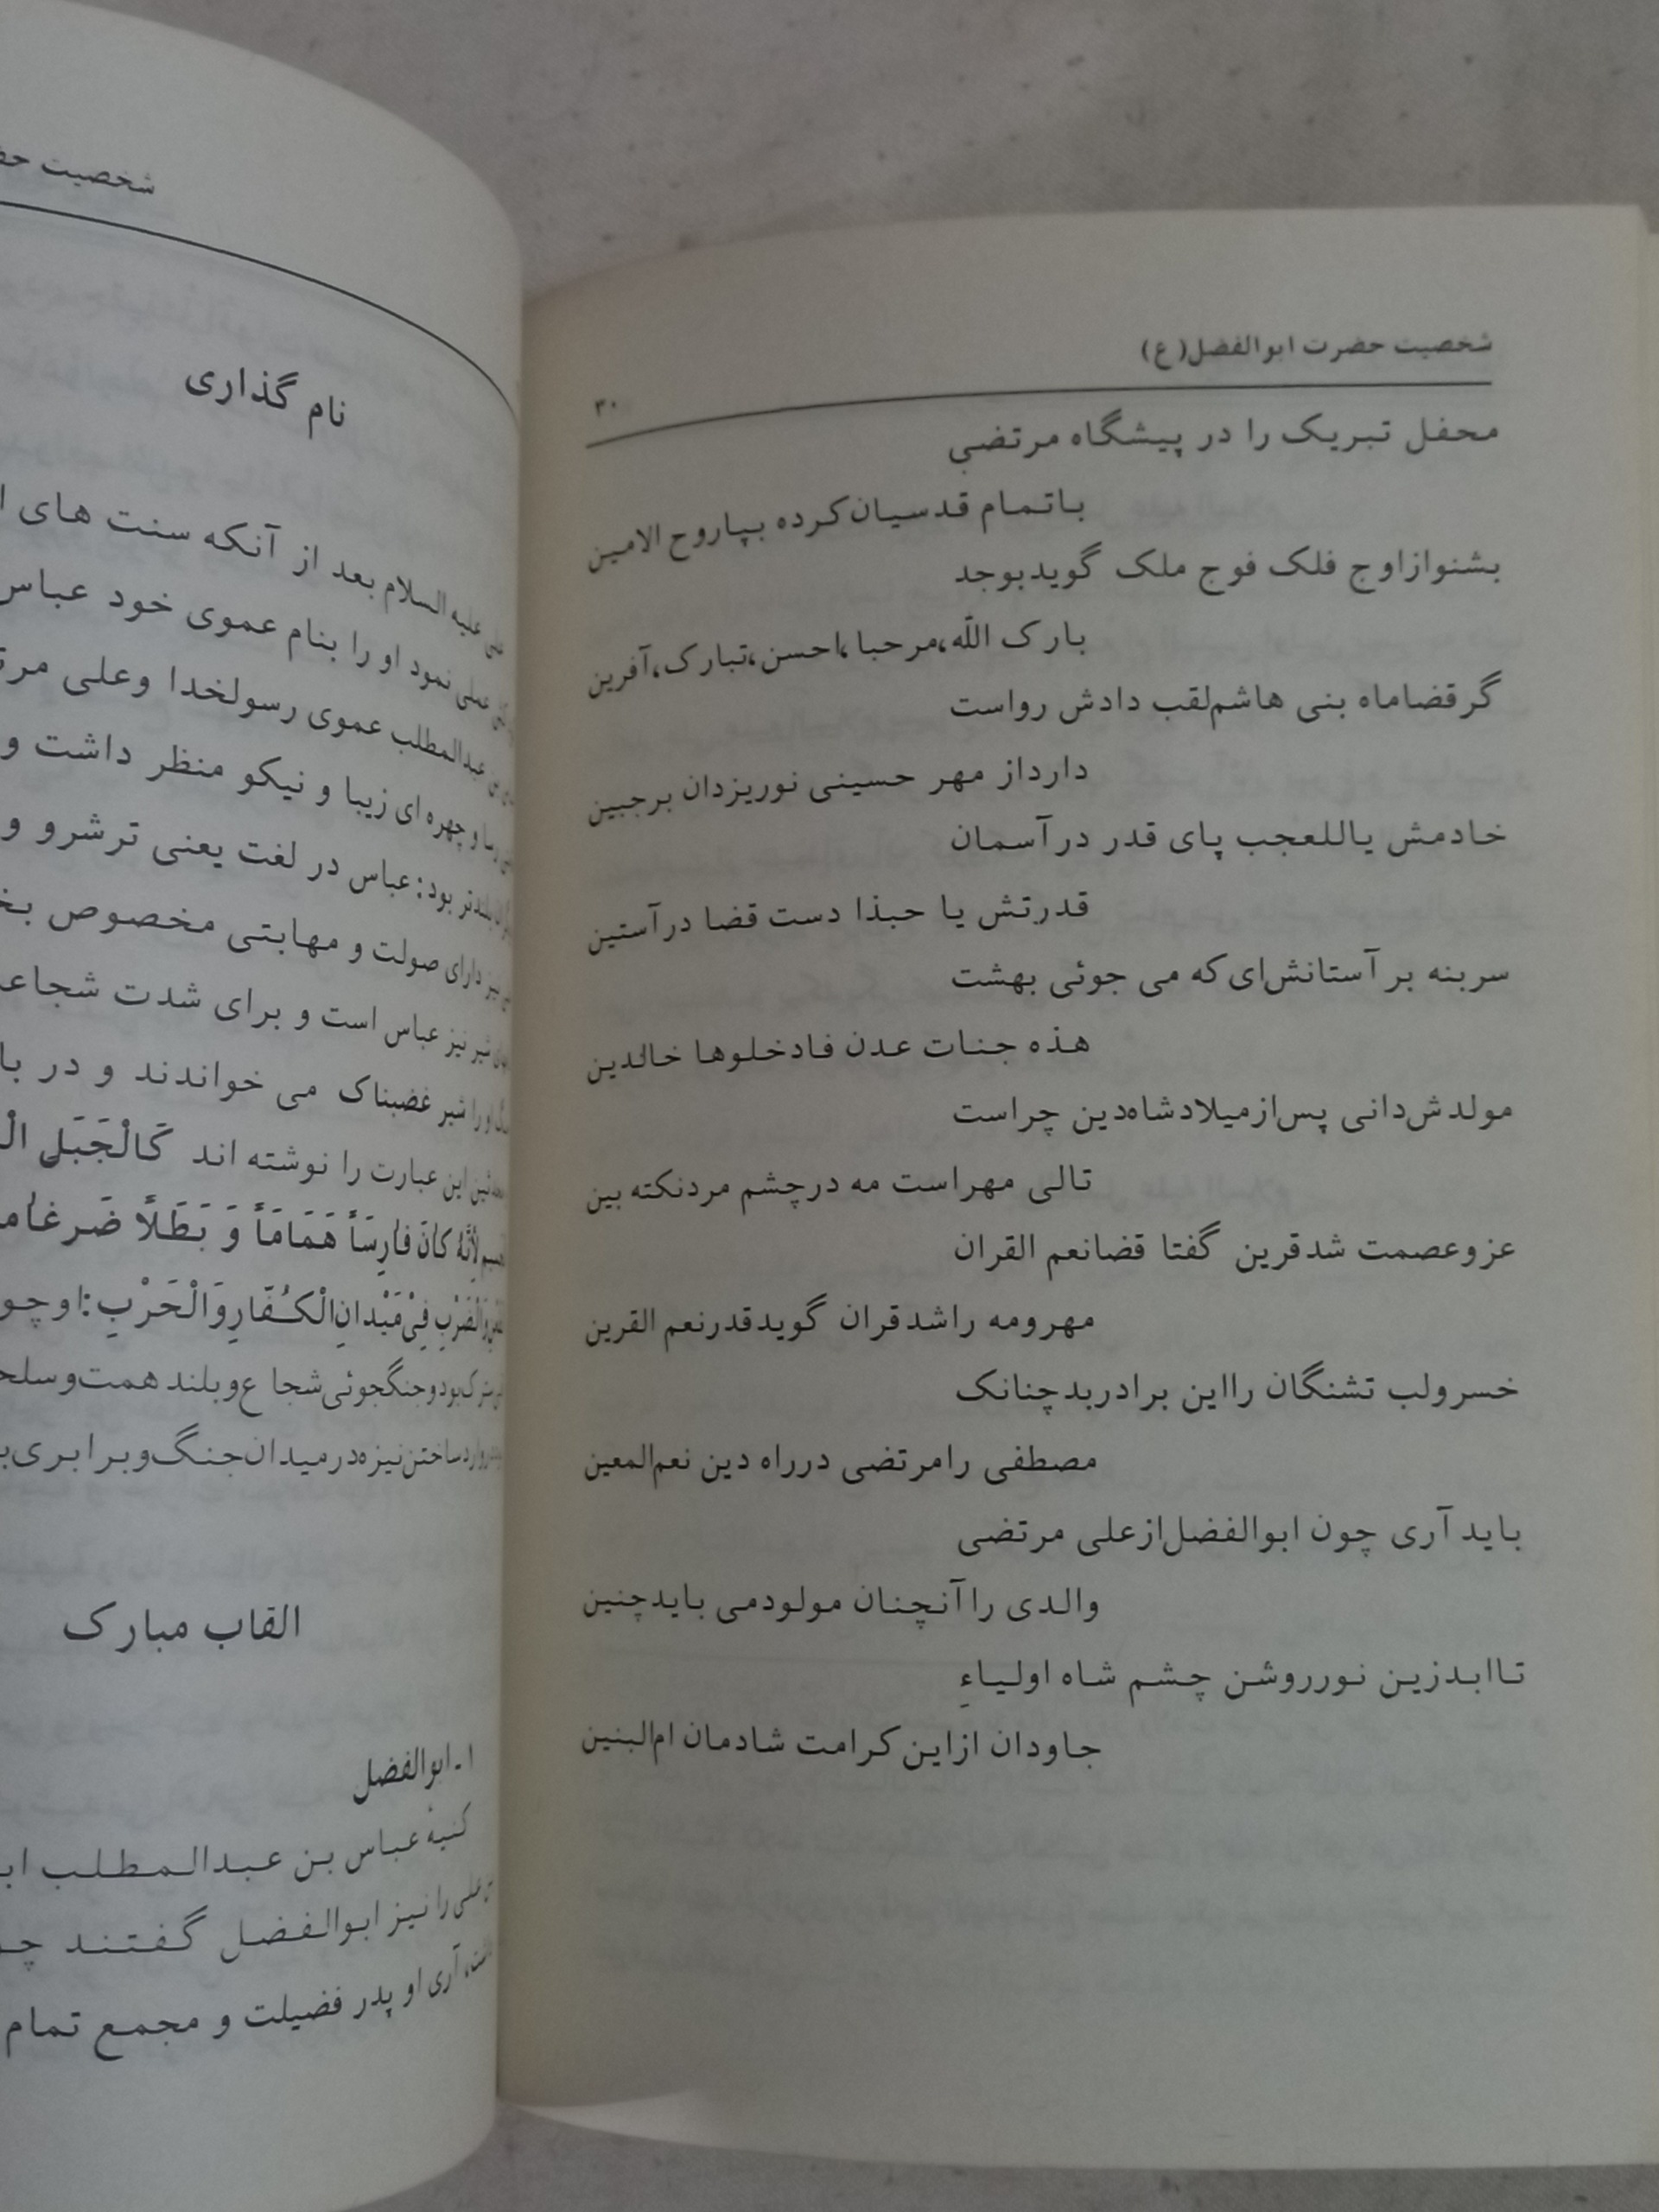 شخصیت حضرت ابوالفضل(ع)
۳۰
محفل تبریک را در پیشگاه مرتضی
باتمام قدسیان‌کرده بپاروح الامین
بشنوازاوج فلک فوج ملک گویدبوجد
بارک اللّه،مرحبا،احسن،تبارک،آفرین
گرقضاماه بنی هاشم‌لقب دادش رواست
دارداز مهر حسینی نوریزدان برجبین
خادمش یاللعجب پای قدر درآسمان
قدرتش یا حبذا دست قضا درآستین
سربنه بر آستانش‌ای‌که می جوئی بهشت
هذه جنات عدن فادخلوها خالدین
مولدش‌دانی پس‌ازمیلادشاه‌دین چراست
تالی مهراست مه درچشم مردنکته بین
عزوعصمت شدقرین گفتا قضانعم القران
مهرومه راشدقران گویدقدرنعم القرین
خسرولب تشنگان رااین برادربدچنانک
مصطفی رامرتضی درراه دین نعم‌المعین
باید آری چون ابوالفضل‌ازعلی مرتضی
والدی را آنچنان مولودمی بایدچنین
تاابدزین نورروشن چشم شاه اولیاءِ
جاودان ازاین‌کرامت شادمان ام‌البنین
شخصیت
نام گذاری
علیه السلام بعد از آنکه سنت های
عملی نمود او را بنام عموی خود عباس
عبدالمطلب عموی رسولخدا وعلی
و چهره ای زیبا و نیکو منظر داشت و
بلندتر بود: عباس در لغت یعنی ترشرو و
نیز دارای صولت و مهابتی مخصوص
شیر نیز عباس است و برای شدت
او را شیر غضبناک می خواندند و در
این عبارت را نوشته اند کَالْجَبَلِ
لِأَنَّهُ کانَ فارِسَاً هَمَامَاً وَ بَطَلًَا
فِیْ مَیْدانِ الْکُفّارِ وَالْحَرْبِ: او
بود وجنگجوئی شجاع وبلند همت و
واردساختن نیزه درمیدان جنگ و برابری
القاب مبارک
۱ـ ابوالفضل
کنیهٔ عباس بن عبدالمطلب
علی را نیز ابوالفضل گفتند
آری او پدر فضیلت و مجمع تمام